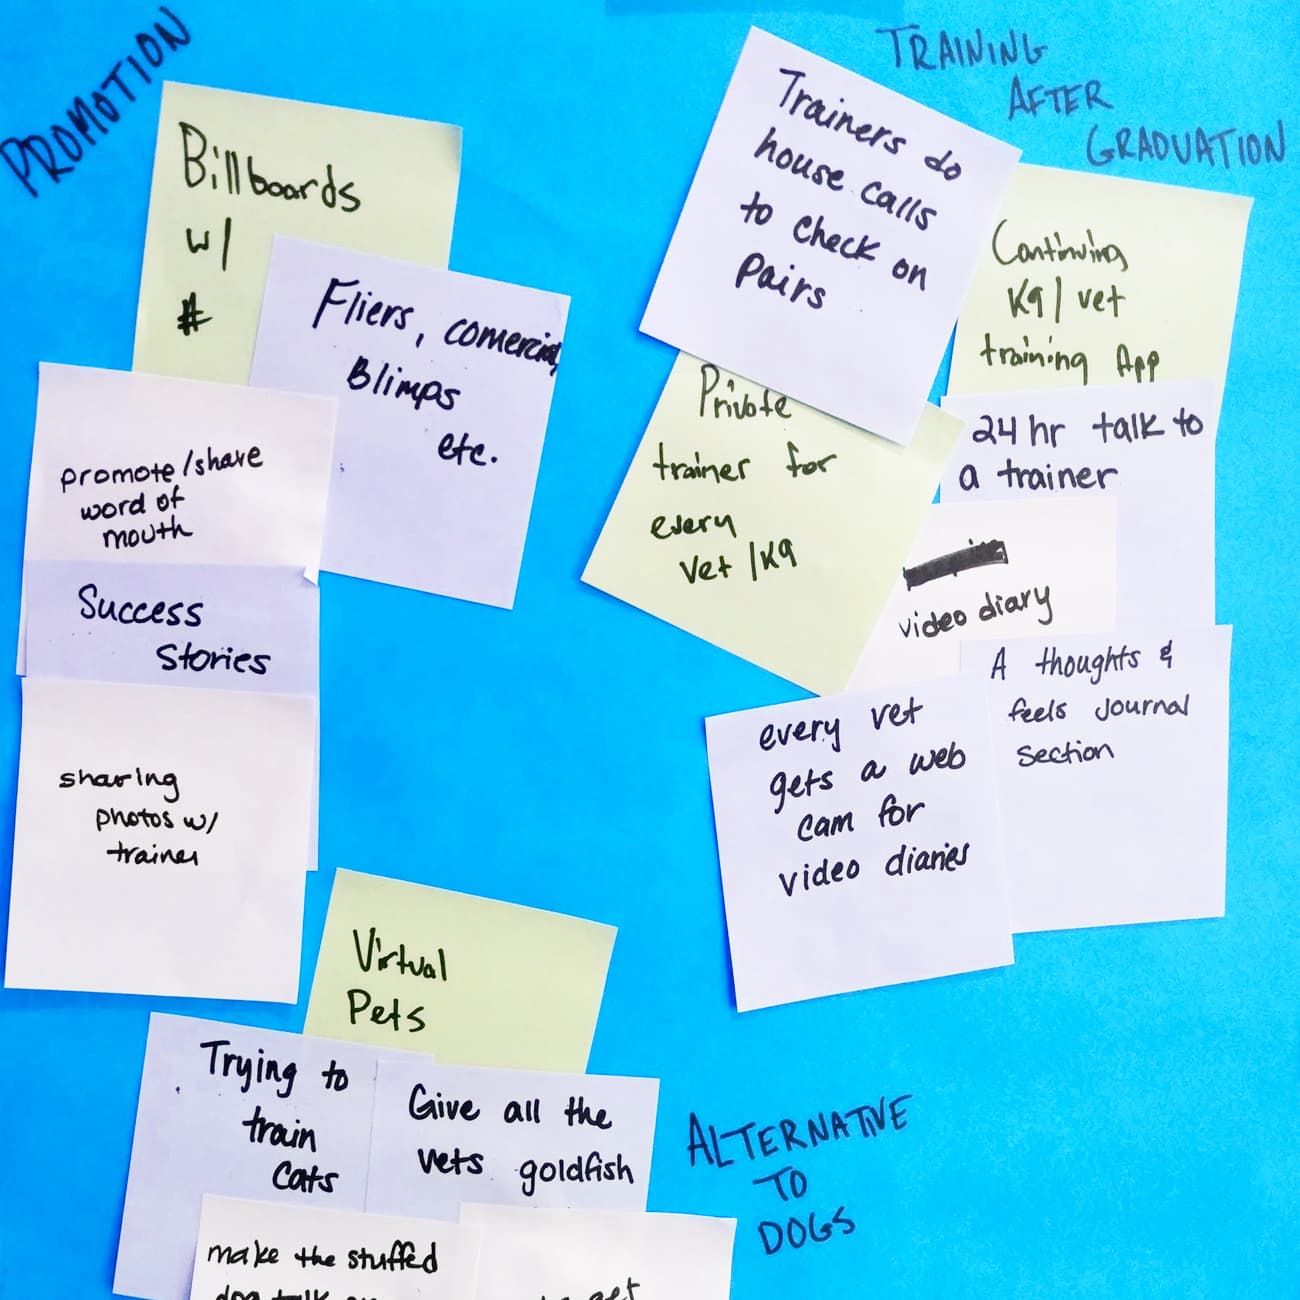 PROMOTION
Billboards
w/
#
Fliers, comercial,
Blimps
etc.
promote/share
word of
mouth
Success
Stories
sharing
photos w/
trainer
TRAINING
AFTER
GRADUATION
Trainers do
house calls
to check on
pairs
Continuing
K9/vet
training App
Private
trainer for
every
vet/K9
24 hr talk to
a trainer
video diary
A thoughts &
feels journal
section
every vet
gets a web
cam for
video diaries
Virtual
Pets
Trying to
train
cats
Give all the
vets goldfish
make the stuffed
dog talk
ALTERNATIVE
TO
DOGS